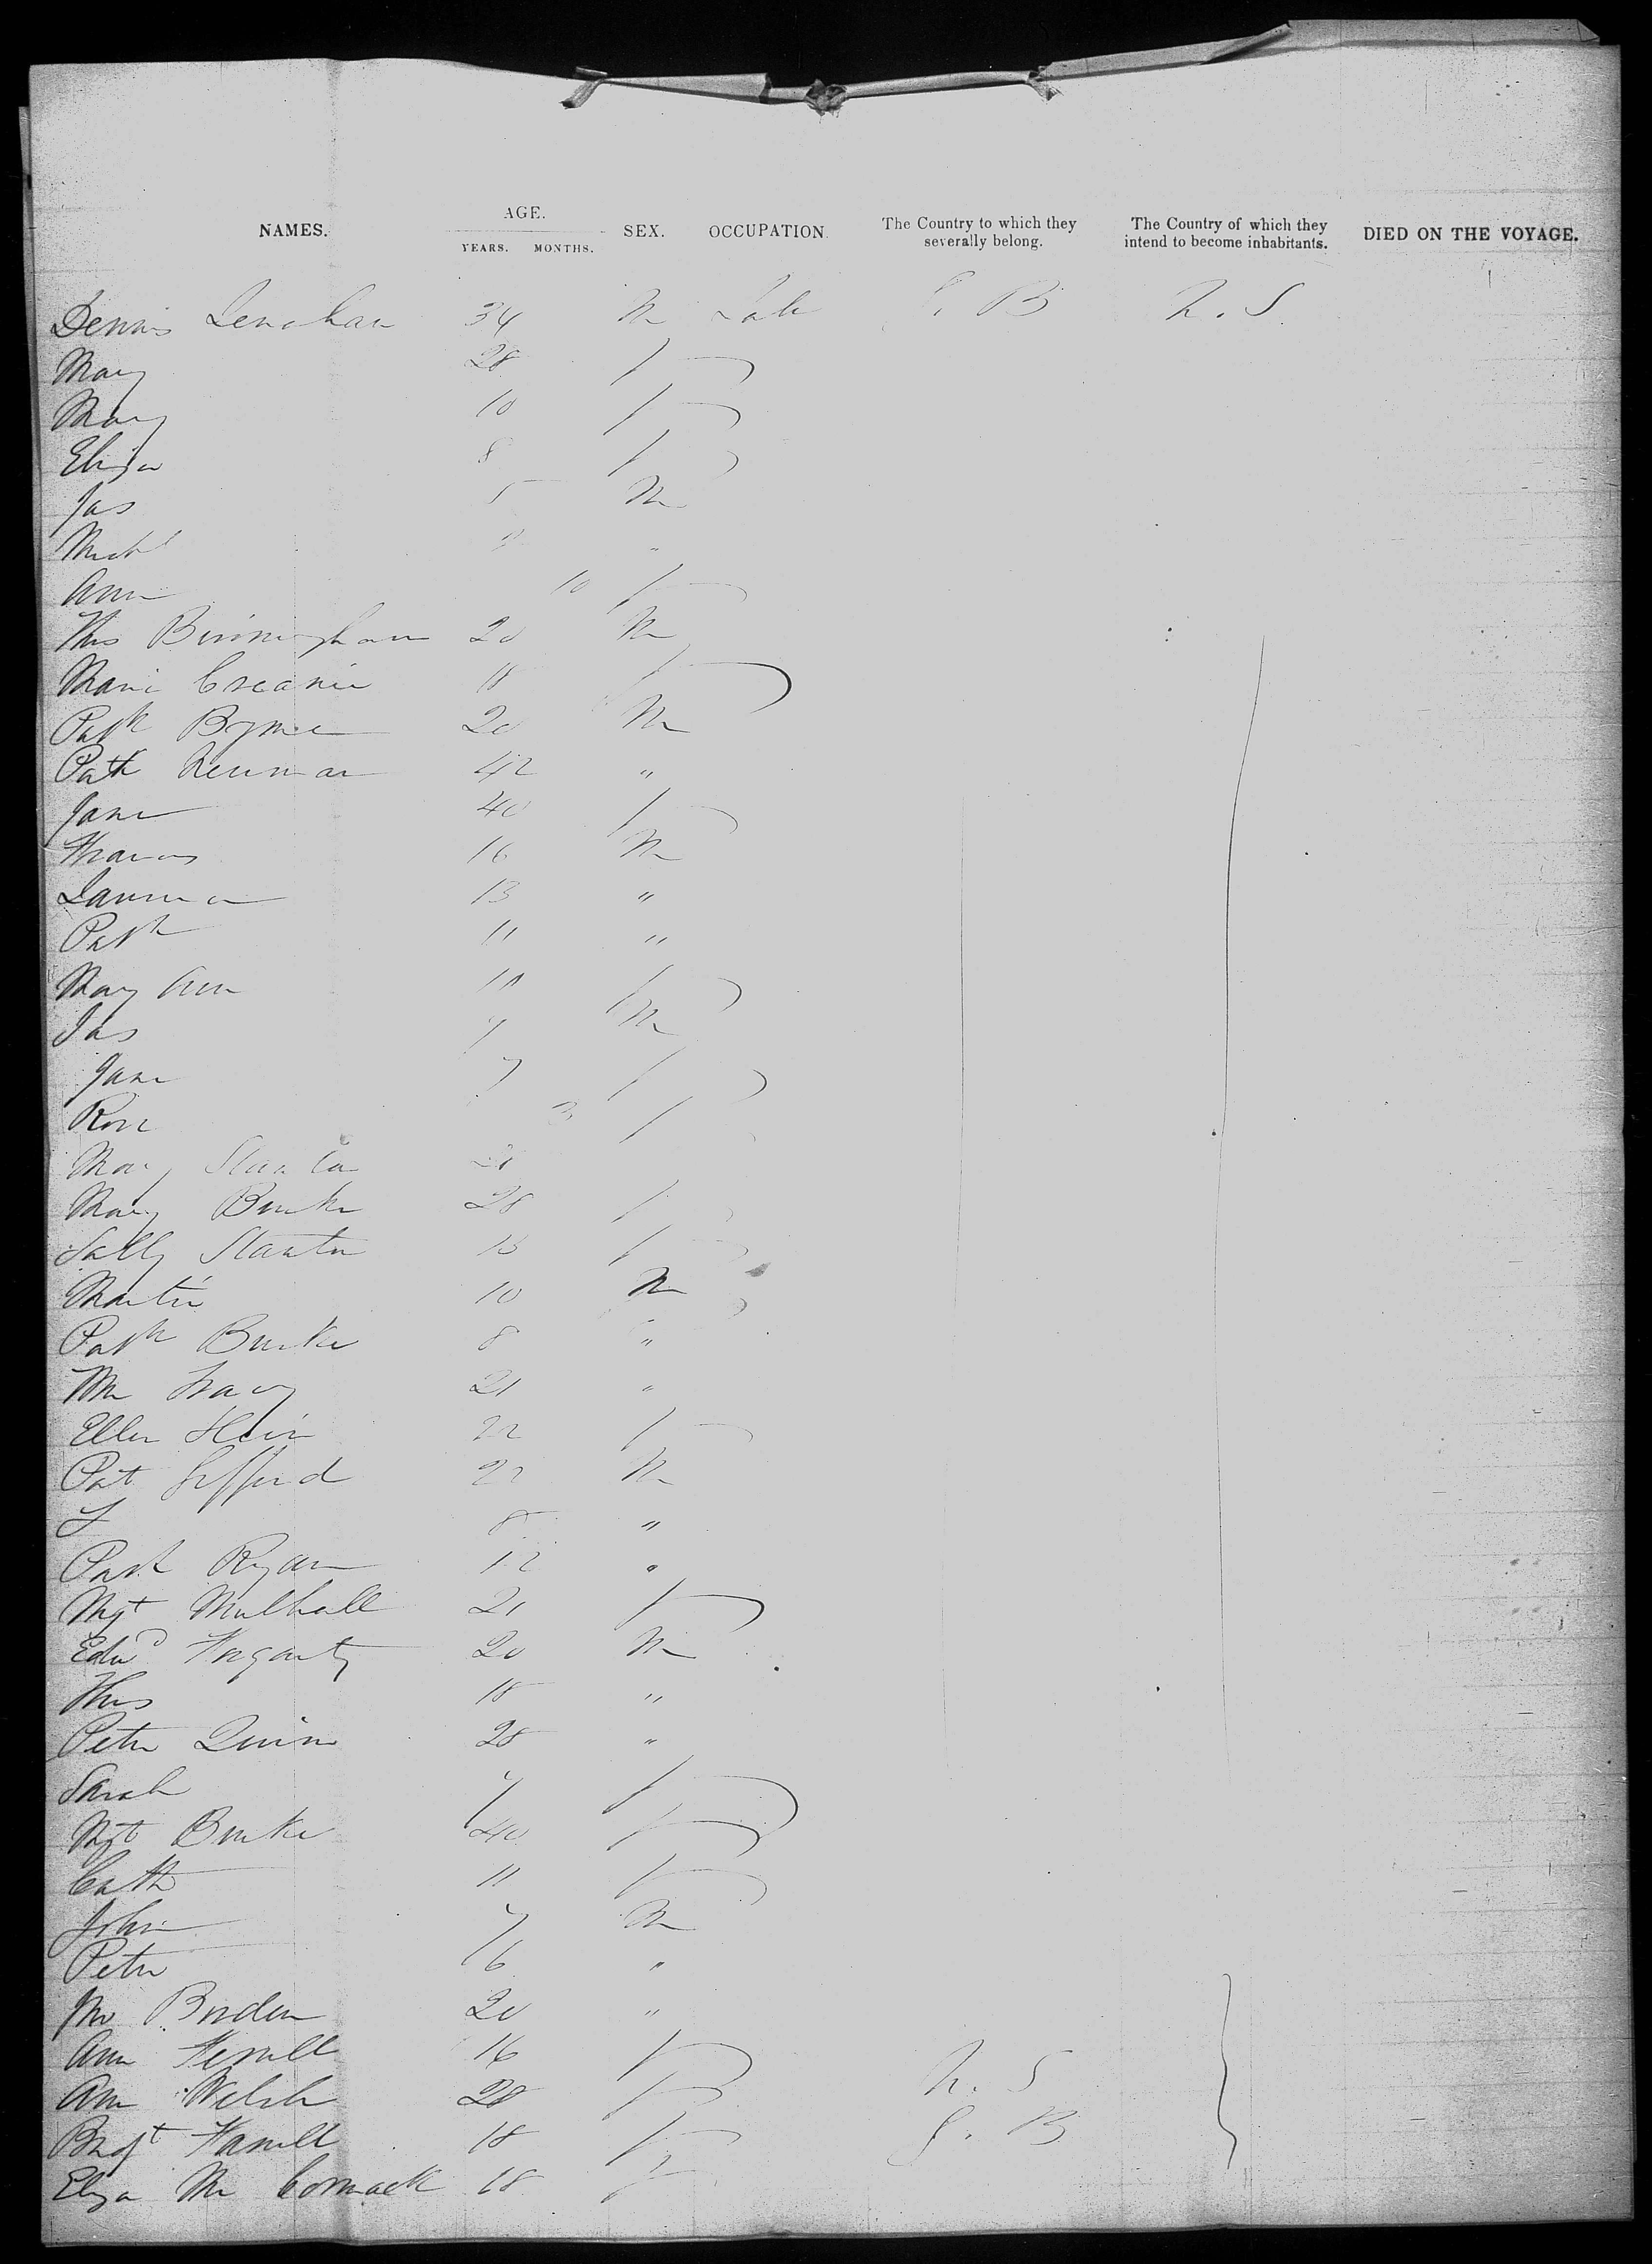 NAMES. AGE. YEARS. MONTHS. SEX. OCCUPATION. The Country to which they severally belong. The Country of which they intend to become inhabitants. DIED ON THE VOYAGE.
Dennis Lenahan 34 M Lab G. B U. S
Mary 28 f
Mary 10 f
Eliza 8 f
Jas 5 M
Michl "
Ann 10 f
Thos Birmingham 20 M
Maria 18 f
Patk Byrne 20 M
Patk Newman 42 "
Jane 40 f
Thomas 16 M
Lawrence 13 "
Patk 11 "
Mary Ann 10 f
Jas 9 M
Jane 7 f
Rose 3 f
Mary Stanton
Mary Burke 28 f
Sally Stanton f
Martin 10 M
Patk Burke 8 "
Wm 21 "
Ellen 22 f
Pat Gifford 22 M
8 "
Patk Ryan 12 "
Mgt Mulhall 21 f
Edwd Fogarty 20 M
Thos 18 "
Peter Quinn 28 "
Sarah 7 f
Mgt Burke 40 f
Cath 11 f
John 7 M
Peter 6 "
Jno 20 "
Ann 16 f U. S
Ann Welsh 28 f G. B
Bridgt 18 f
Eliza Mc Cormack 18 f